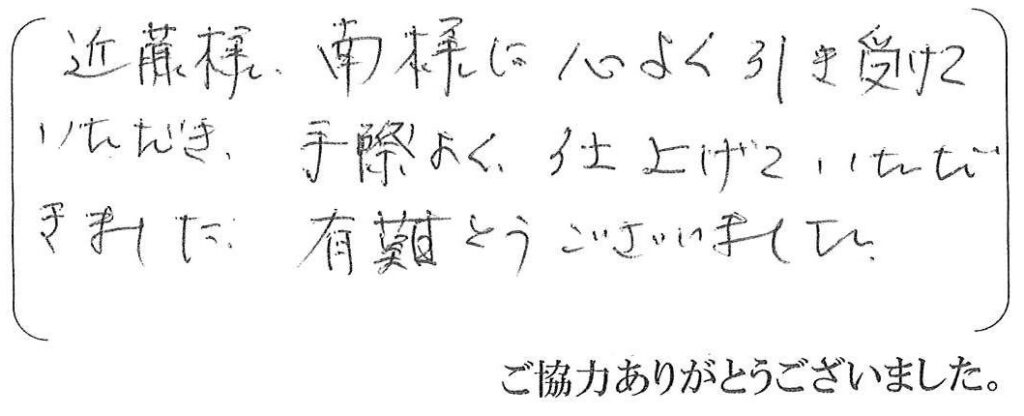 近藤様、南様に心よく引き受けて
いただき、手際よく、仕上げていただ
きました。有難とうございました。
ご協力ありがとうございました。